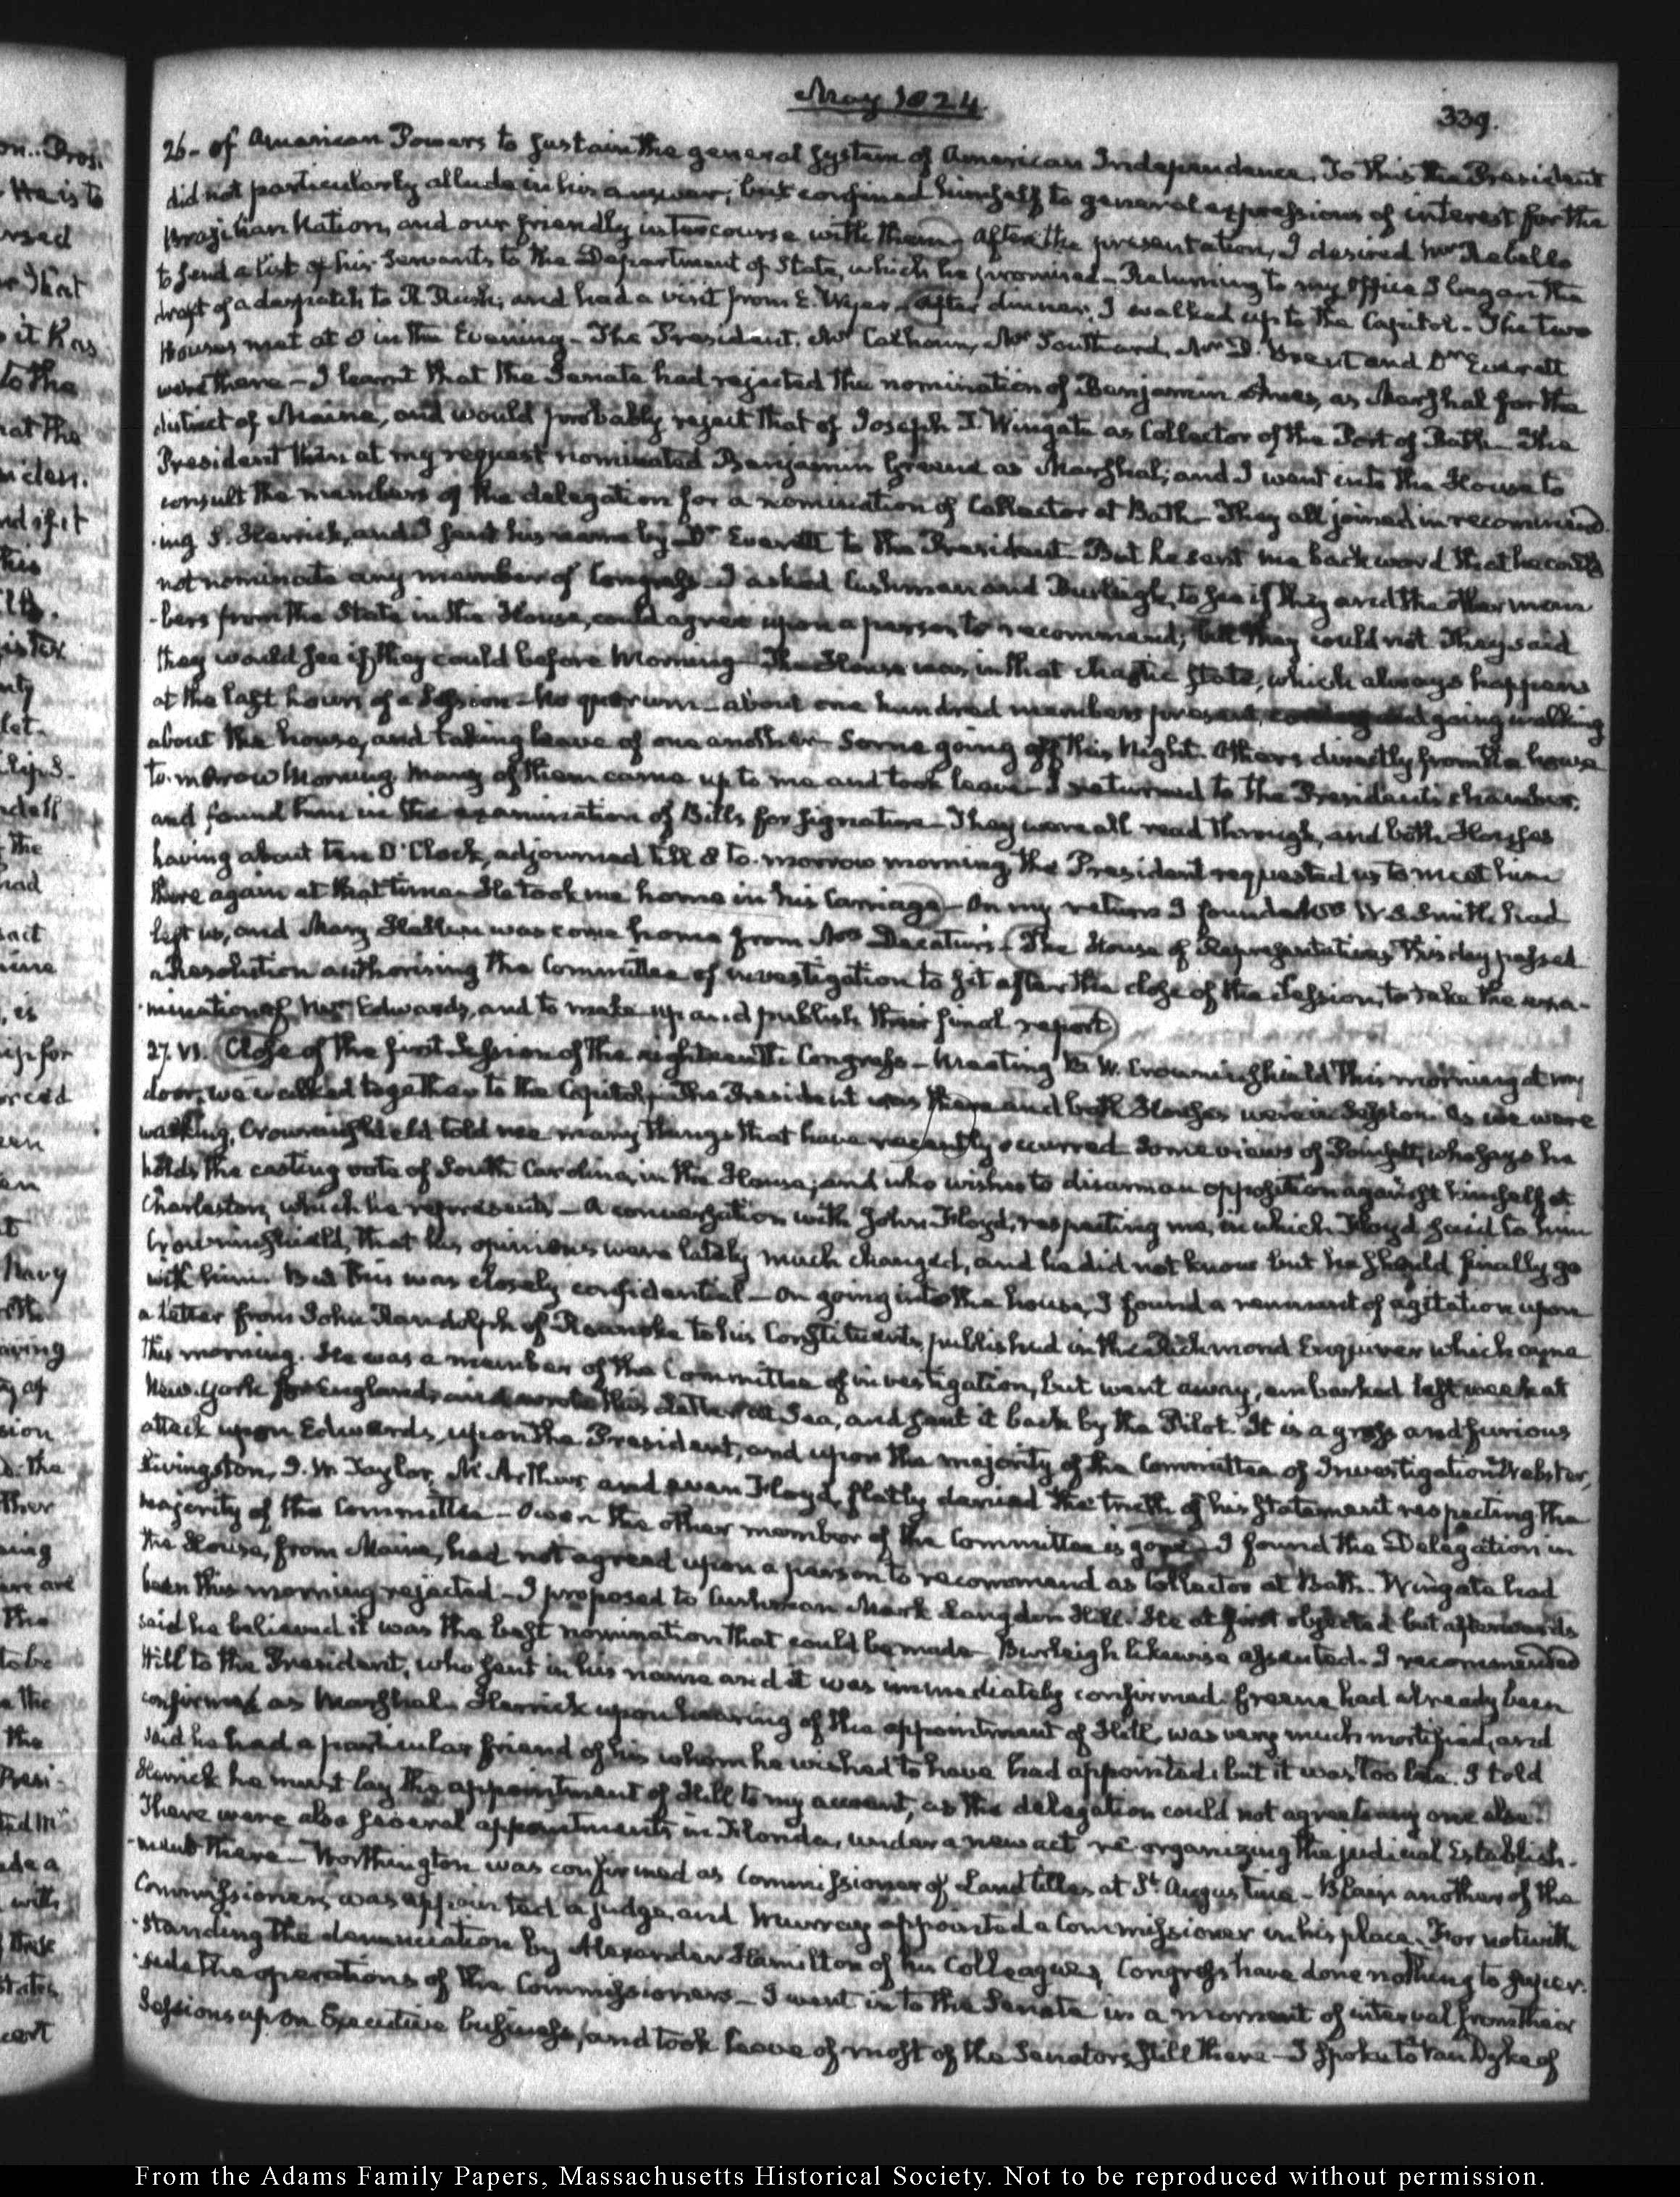 May 1824.
339.
26- of American Powers to sustain the general system of American Independence. To this the President
did not particularly allude in his answer; but confined himself to general expressions of interest for the
Brazilian Nation, and our friendly intercourse with them. After the presentation, I desired Mr Rebello
to send a list of his Servants to the Department of State, which he promised - Returning to my Office I began the
draft of a despatch to R. Rush, and had a visit from E. Wyer - After dinner, I walked up to the Capitol - The two
Houses met at 8 in the Evening - The President, Mr Calhoun, Mr Southard, Mr D. Brent and Dr Everett
were there - I learnt that the Senate had rejected the nomination of Benjamin Ames, as Marshal for the
district of Maine, and would probably reject that of Joseph F. Wingate as Collector of the Port of Bath - The
President then at my request nominated Benjamin Greene as Marshal; and I went into the House to
consult the members of the delegation for a nomination of Collector at Bath - They all joined in recommend-
ing S. Herrick, and I sent his name by Dr Everett to the President - But he sent me back word that he could
not nominate any member of Congress - I asked Cushman and Burleigh, to see if they and the other mem
-bers from the State in the House, could agree upon a person to recommend; but they could not. They said
they would see if they could before Morning - The House was in that chaotic state, which always happens
at the last hours of a Session - No quorum - about one hundred members present, going walking
about the house, and taking leave of one another - Some going off this Night. Others directly from the house
to-morrow Morning. Many of them came up to me and took leave - I returned to the President's chamber,
and found him in the examination of Bills for signature - They were all read through, and both Houses
having about ten O'Clock, adjourned till 8 to-morrow morning, the President requested us to meet him
there again at that time - He took me home in his Carriage - On my return I found W. S. Smith had
left us, and Mary Hellen was come home from Mrs Decatur's - The House of Representatives this day passed
a Resolution authorising the Committee of investigation to sit after the close of the Session, to take the exa-
-mination of Mr Edwards, and to make up and publish their final report
27. VI. Close of the first Session of the eighteenth Congress - Meeting B. W. Crowninshield this morning at my
door, we walked together to the Capitol - The President was there and both Houses were in Session. As we were
walking, Crowninshield told me many things that have recently occurred. Some views of Poinsett, who says he
holds the casting vote of South Carolina, in the House; and who wishes to disarm an opposition against himself at
Charleston, which he represents - A conversation with John Floyd, respecting me, in which Floyd said to him
Crowninshield, that his opinions were lately much changed, and he did not know but he should finally go
with him. But this was closely confidential - On going into the house, I found a remnant of agitation upon
a letter from John Randolph of Roanoke to his Constituents, published in the Richmond Enquirer which came
this morning. He was a member of the Committee of investigation, but went away, embarked last week at
New-York for England, and wrote this letter at Sea, and sent it back by the Pilot. It is a gross and furious
attack upon Edwards, upon the President, and upon the majority of the Committee of Investigation. Webster,
Livingston, J. W. Taylor, McArthur, and even Floyd, flatly denied the truth of his statement respecting the
majority of the Committee - Owen the other member of the Committee is gone - I found the Delegation in
the House, from Maine, had not agreed upon a person to recommend as Collector at Bath. Wingate had
been this morning rejected - I proposed to Cushman Mark Langdon Hill. He at first objected but afterwards
said he believed it was the best nomination that could be made - Burleigh likewise assented. I recommended
Hill to the President, who sent in his name and it was immediately confirmed. Greene had already been
confirmed as Marshal. Herrick upon hearing of the appointment of Hill, was very much mortified, and
said he had a particular friend of his whom he wished to have had appointed; but it was too late. I told
Herrick he must lay the appointment of Hill to my account, as the delegation could not agree to any one else.
There were also several appointments in Florida, under a new act re-organizing the judicial Establish-
-ment there - Worthington was confirmed as Commissioner of Land titles at St. Augustine - Blair another of the
Commissioners, was appointed a judge, and Murray appointed a Commissioner in his place. For notwith
-standing the denunciation by Alexander Hamilton of his Colleagues, Congress have done nothing to super-
-sede the operations of the Commissioners - I went in to the Senate in a moment of interval from their
Sessions upon Executive business, and took leave of most of the Senators still there - I spoke to Van Dyke of
From the Adams Family Papers, Massachusetts Historical Society. Not to be reproduced without permission.